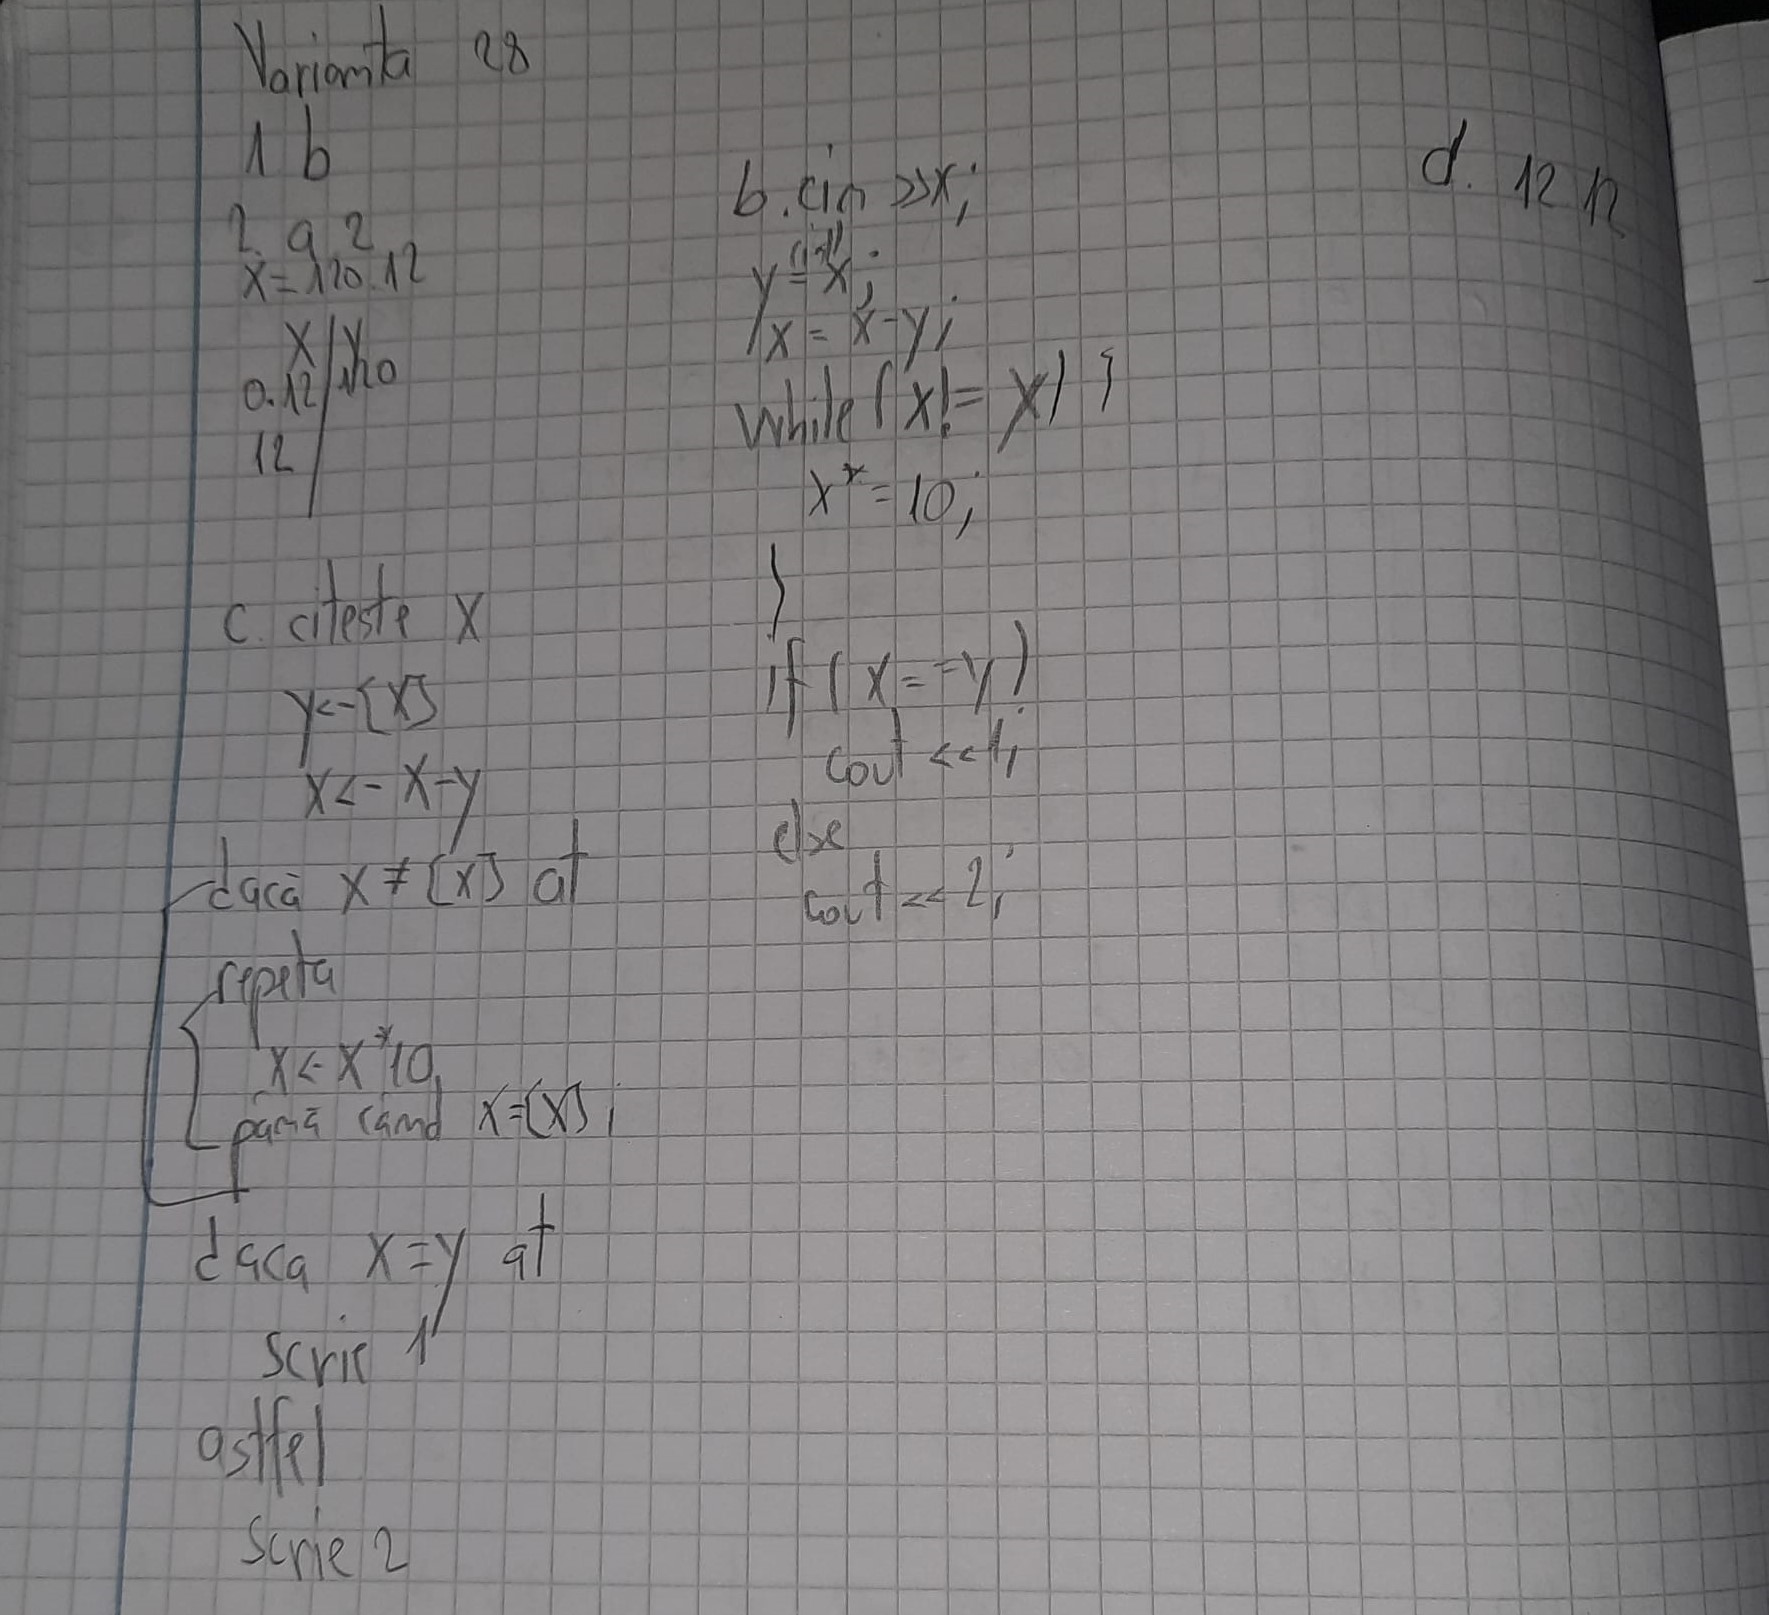 Varianta 28
1 b
2. a 2
x=120.12
x | y
0.12 | 120
12
c. citeste x
y<-[x]
x<-x-y
dacă x≠[x] at
repeta
x<-x*10
până când x=[x];
daca x=y at
scrie 1
astfel
scrie 2
b. cin >>x;
y=(int)x;
x=x-y;
while(x!=y){
x*=10;
}
if(x==y)
cout<<1;
else
cout<<2;
d. 12 12